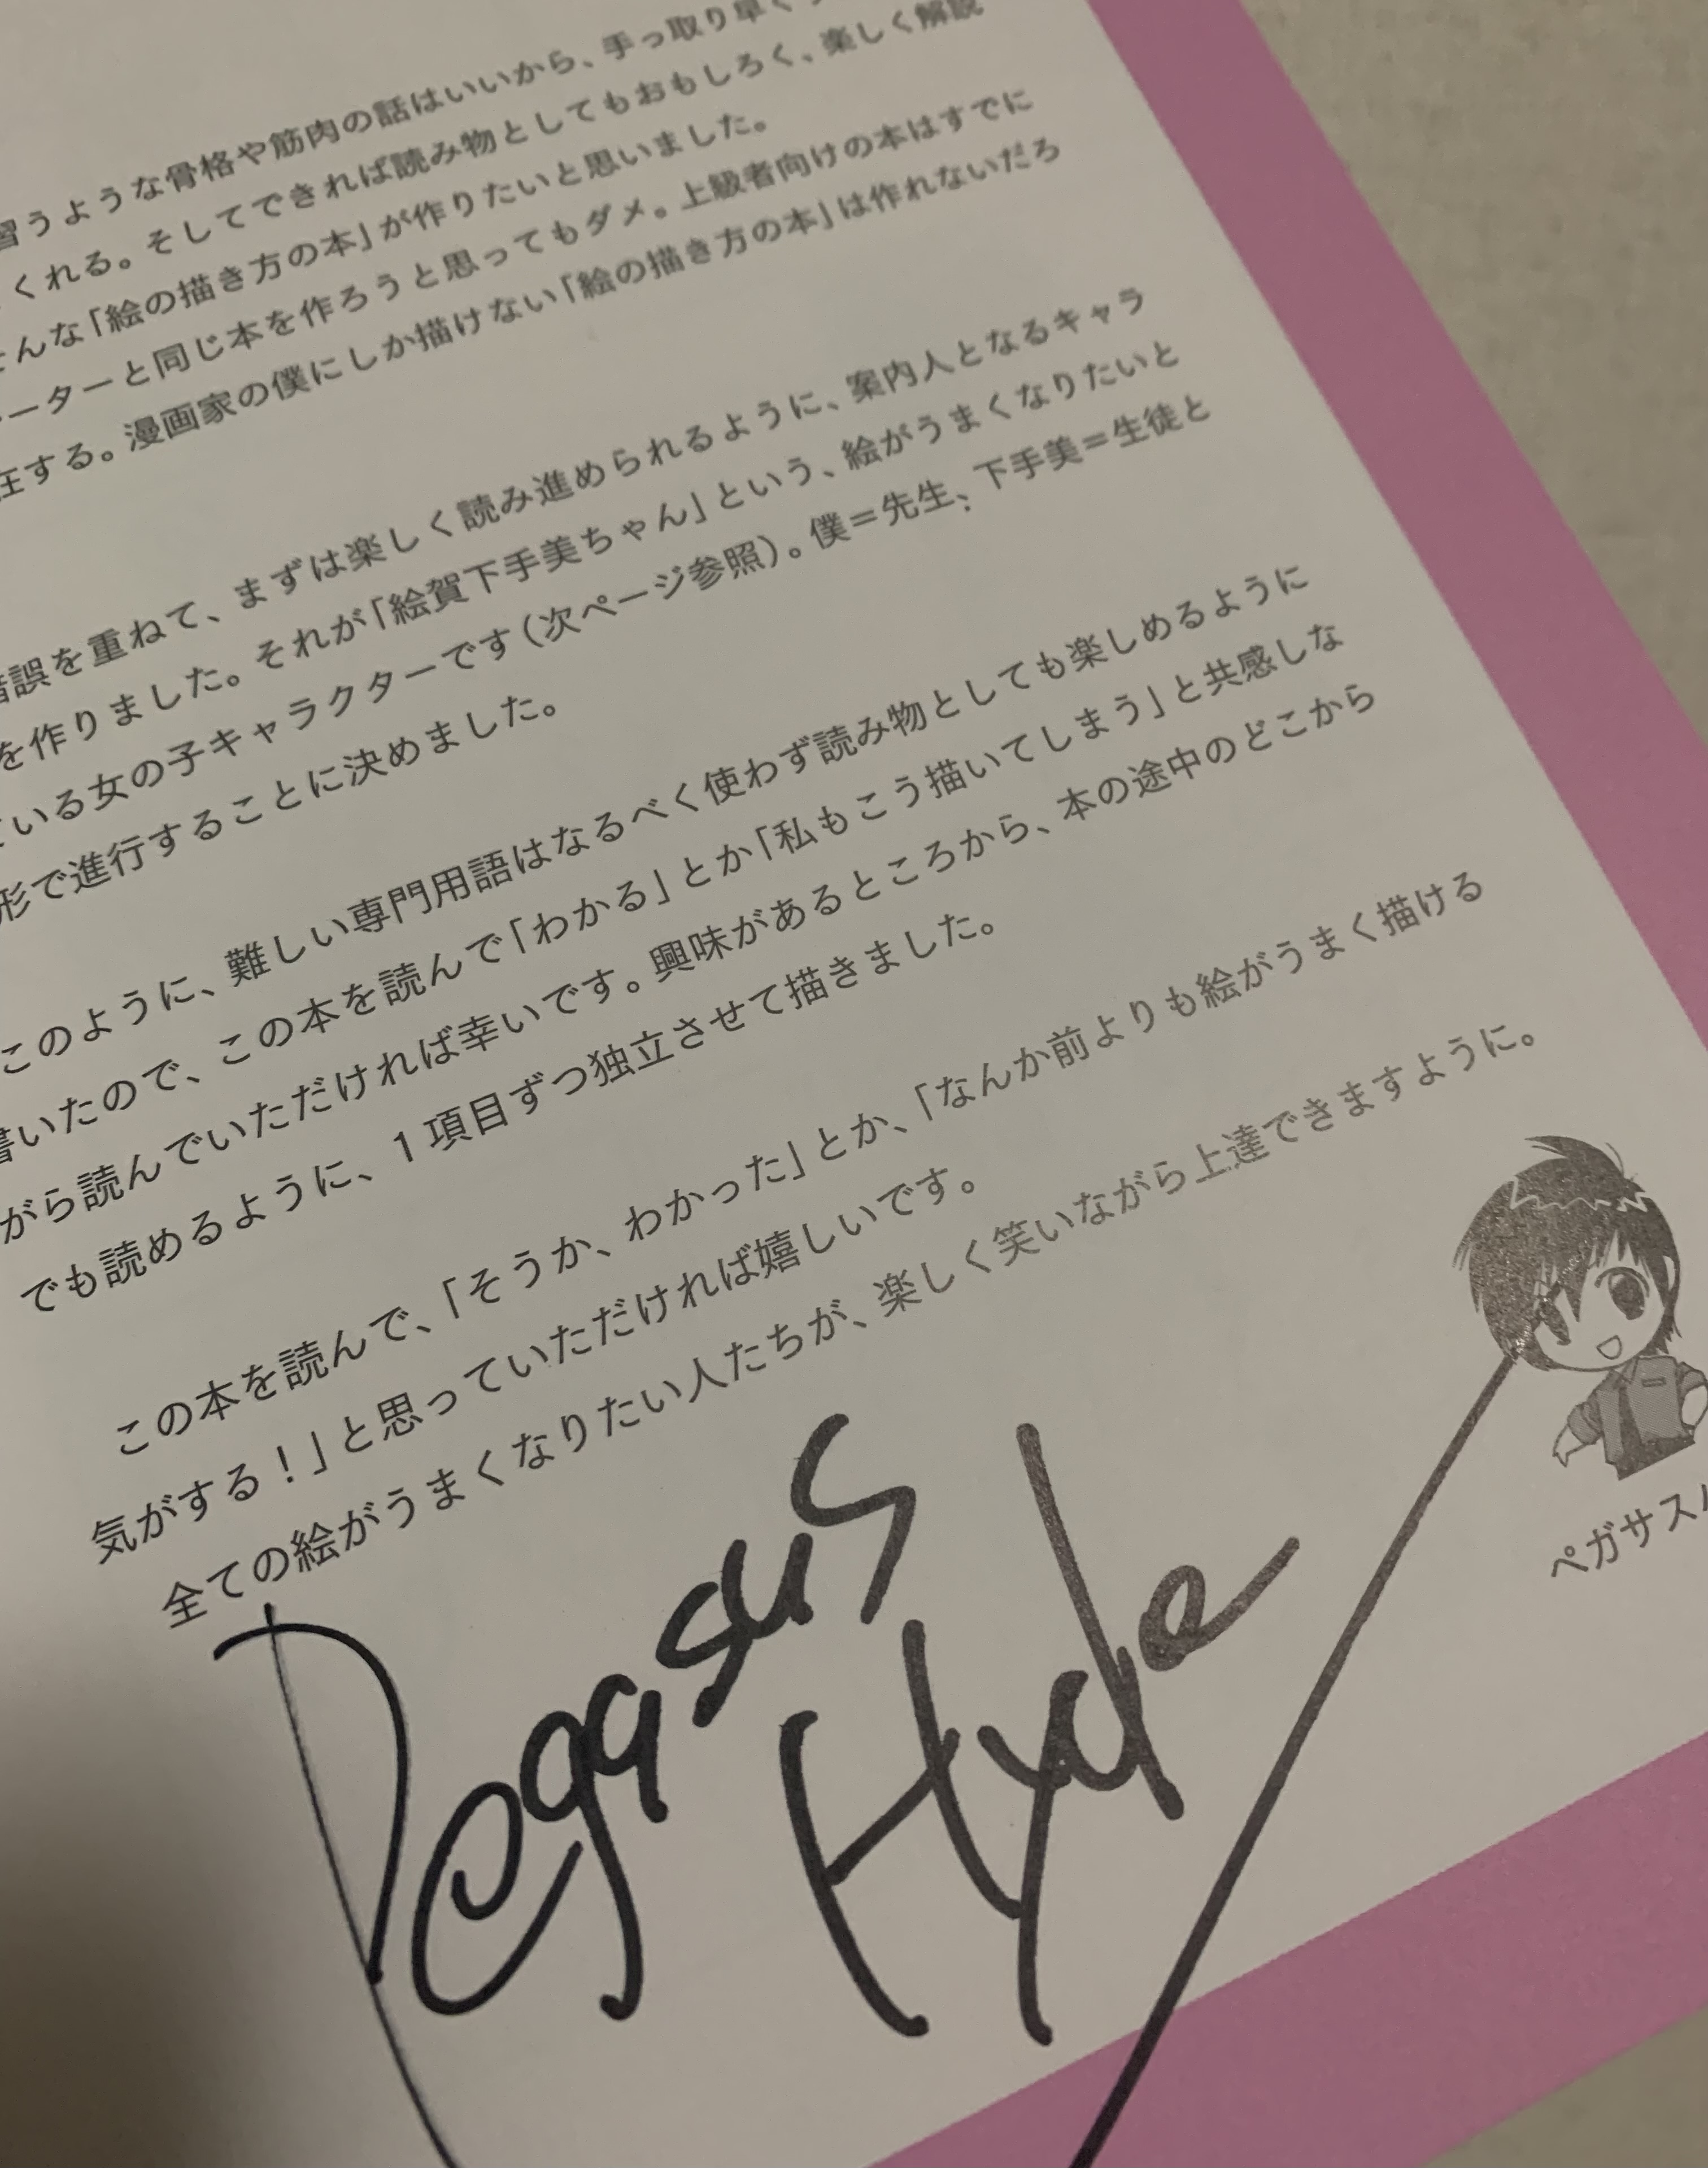 習うような骨格や筋肉の話はいいから、手っ取り早く
くれる。そしてできれば読み物としてもおもしろく、楽しく解説
んな「絵の描き方の本」が作りたいと思いました。
ーターと同じ本を作ろうと思ってもダメ。上級者向けの本はすでに
在する。漫画家の僕にしか描けない「絵の描き方の本」は作れないだろ
錯誤を重ねて、まずは楽しく読み進められるように、案内人となるキャラ
を作りました。それが「絵賀下手美ちゃん」という、絵がうまくなりたいと
いる女の子キャラクターです（次ページ参照）。僕＝先生、下手美＝生徒と
形で進行することに決めました。
このように、難しい専門用語はなるべく使わず読み物としても楽しめるように
書いたので、この本を読んで「わかる」とか「私もこう描いてしまう」と共感しな
がら読んでいただければ幸いです。興味があるところから、本の途中のどこから
でも読めるように、１項目ずつ独立させて描きました。
この本を読んで、「そうか、わかった」とか、「なんか前よりも絵がうまく描ける
気がする！」と思っていただければ嬉しいです。
全ての絵がうまくなりたい人たちが、楽しく笑いながら上達できますように。
ペガサス
Pegasus
Hyde